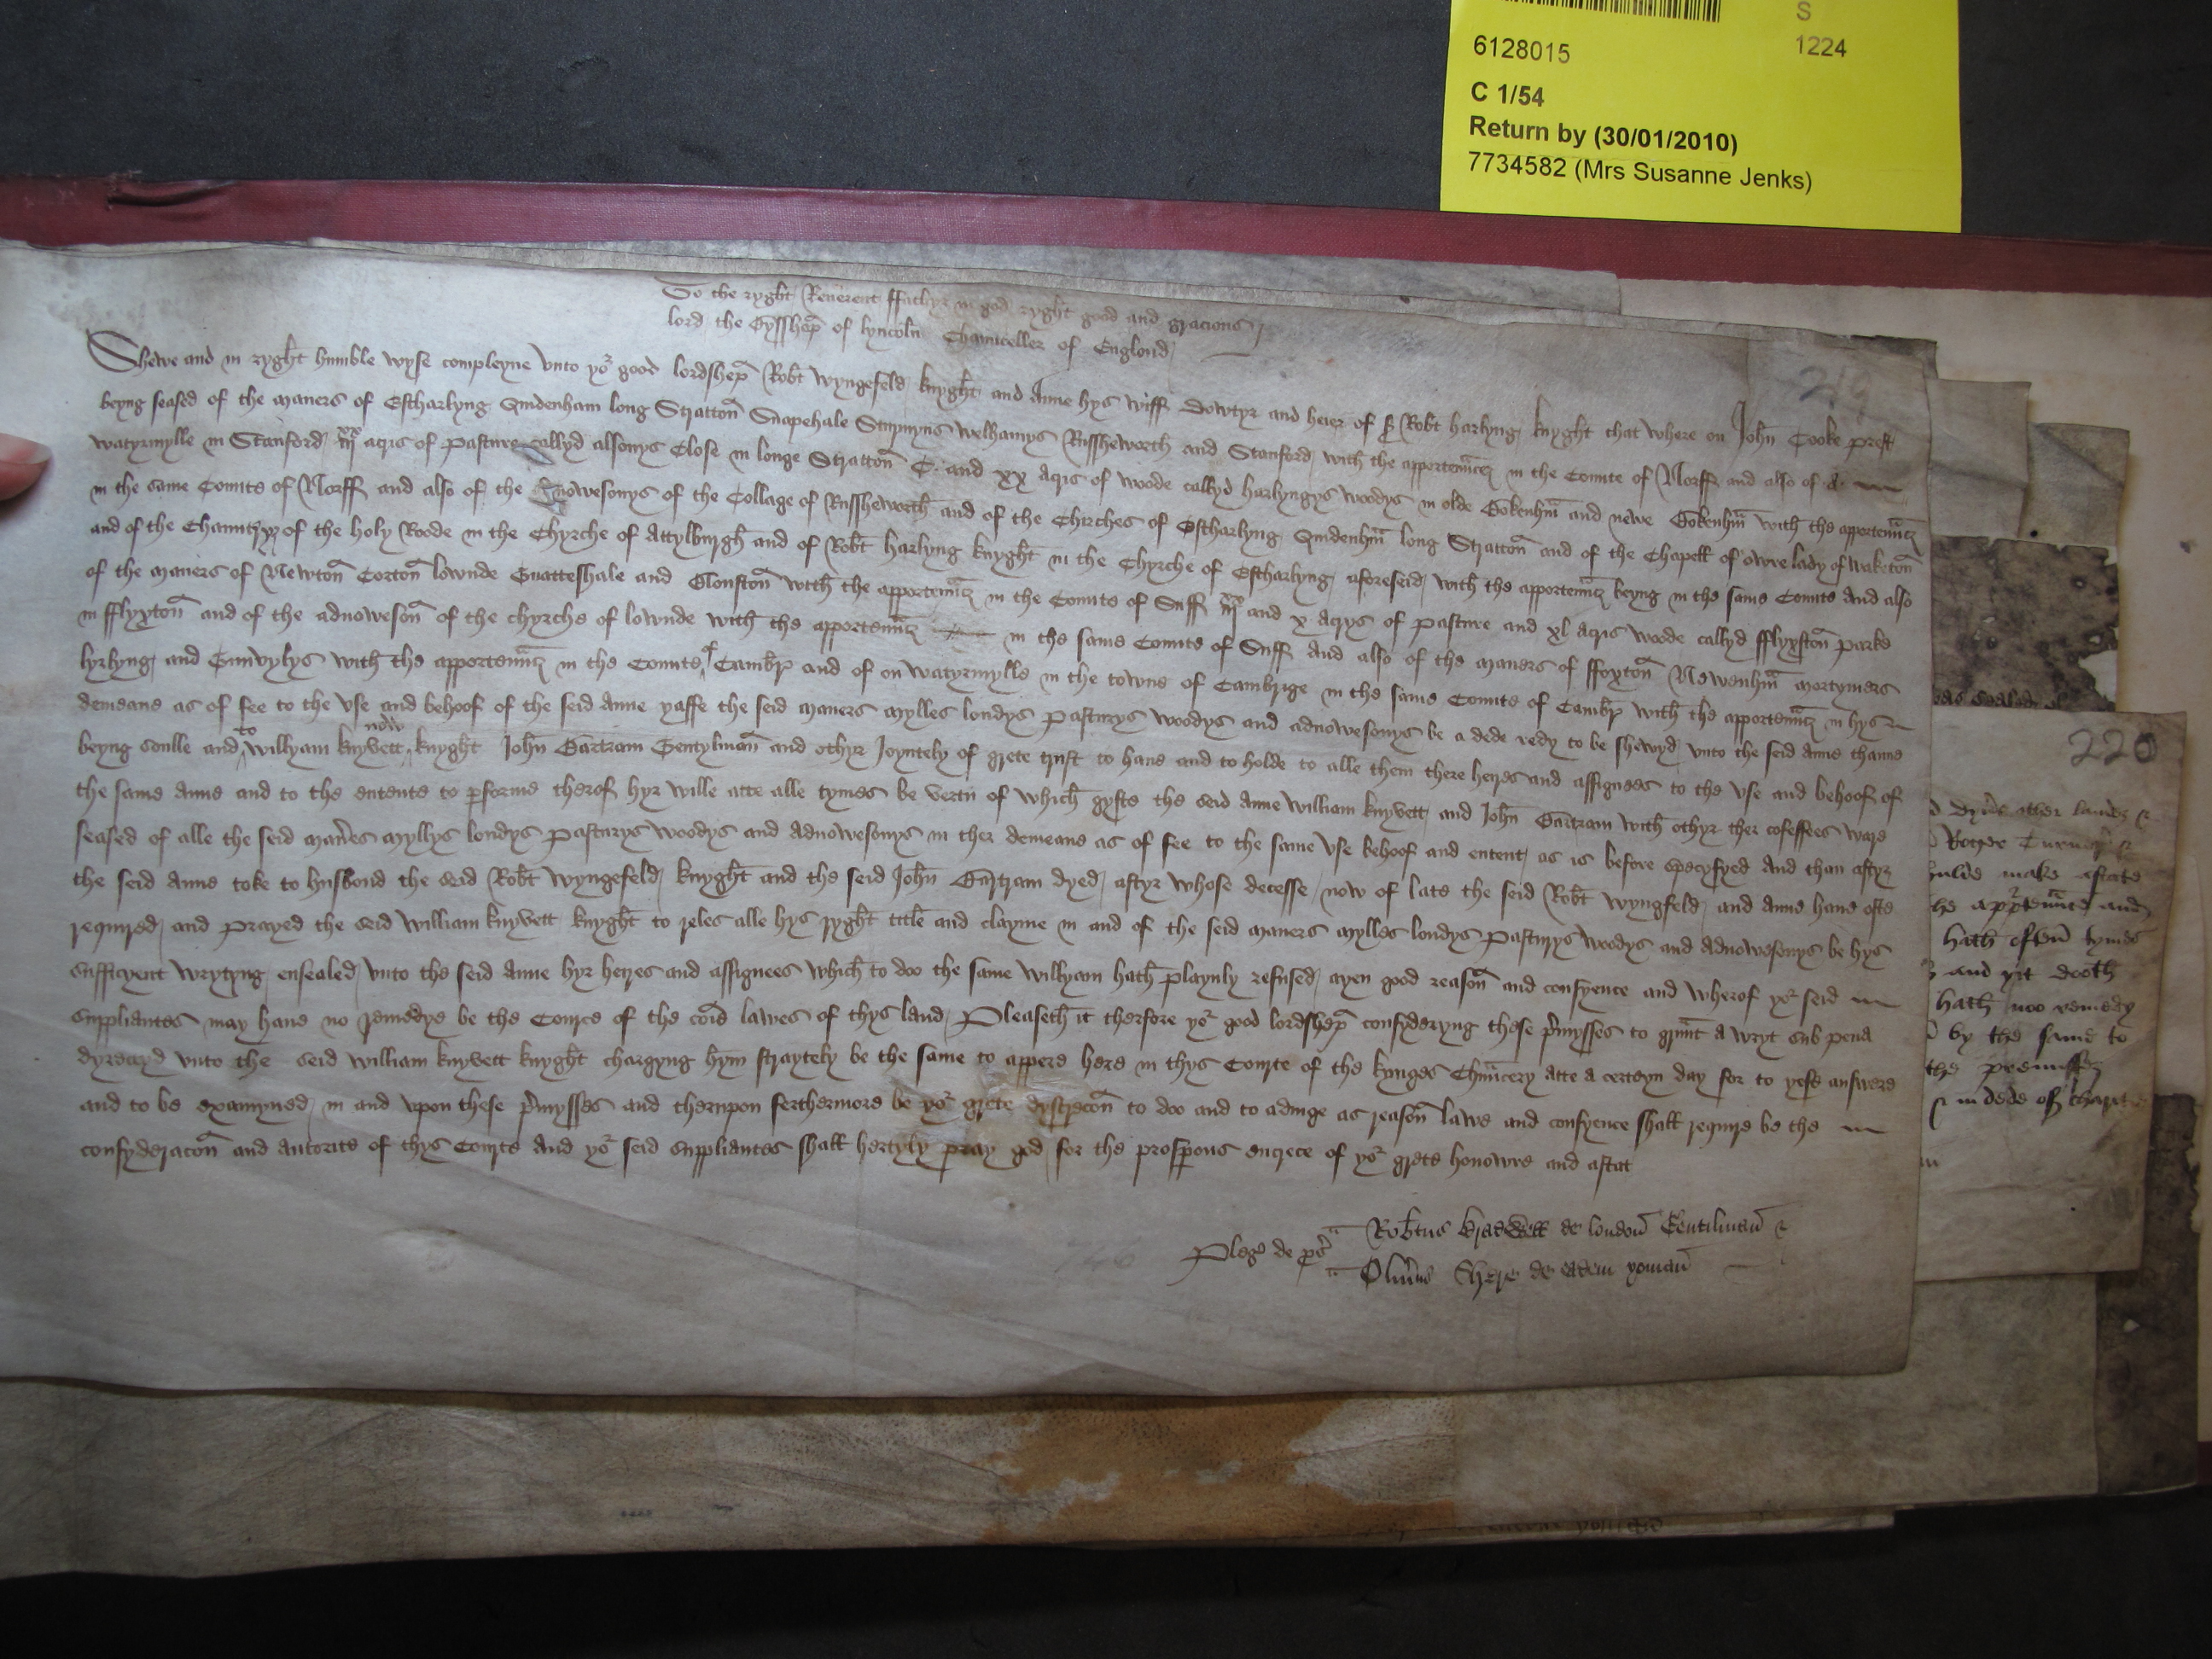 S
6128015 1224
C 1/54
Return by (30/01/2010)
7734582 (Mrs Susanne Jenks)
To the ryght Reuerent ffathyr in god ryght good and gracious
lord the Bysshep̄ of lyncoln̄ Chaunceller of Englond
219
Shewe and in ryght humble wyse compleyne vnto yor good lordshep̄ Robt wyngefeld knyght and Anne hys wiff dowtyr and heier of Robt harlyng knyght that where on John̄ Cooke prest
beyng seased of the maners of Estharlyng Quidenham long Stratton̄ Snapehale welhamys Russheworth and Stanford with the appertenn̄cȝ in the Comite of Norff and also of A
watyrmylle in Stanford iiijxx acris of pasture callyd alsonys Close in longe Stratton̄ C and xx Acris of woode callyd harlyngys woodys in olde Bokenhm̄ and newe Bokenhm̄ with the appertenn̄cȝ
in the same Comite of Norff and also of the Avowesonys of the Collage of Russheworth̄ and of the Chirches of Estharlyng Quidenhm̄ long Stratton̄ and of the Chapell of owre lady of waketon̄
and of the Chauntryȝ of the holy Roode in the Chyrche of Attylburgh̄ and of Robt̄ harlyng knyght in the Chyrche of Estharlyng aforeseid with the appertenn̄cȝ beyng in the same Comite And also
of the maners of Newton̄ Corton̄ lownde Gnatteshale and Clonston̄ with the appertenn̄cȝ in the Comite of Suff iiijxx and x Acrys of pasture and xl Acris woode callyd fflyxston̄ parke
in fflyxton̄ and of the advoweson̄ of the chyrche of lownde with the appertenn̄cȝ in the same Comite of Suff And also of the maners of ffoxton̄ Newenhm̄ mortymers
lyrlyng and Gunvylys with the appertenn̄cȝ in the Comite of Cambr̄ and of on watyrmylle in the towne of Cambrige in the same Comite of Cambr̄ with the appertenn̄cȝ in hys
demeane as of fee to the vse and behoof of the seid Anne yaffe the seid maners mylles londys pasturys woodys and advowesonys be a dede redy to be shewyd vnto the seid Anne thanne
beyng soulle and to willyam knyvett now knyght John̄ Bartram Gentylman̄ and othyr Joyntely of grete trust to haue and to holde to alle them there heyres and assignees to the vse and behoof of
the same Anne and to the entente to p̄forme therof hyr wille atte alle tymes be vertu of which̄ gyfte the seid Anne william knyvett and John̄ Bartram with̄ othyr ther cofeffees ware
seased of alle the seid man̄es myllys londys pasturys woodys and Advowesonys in ther demeane as of fee to the same vse behoof and entent as is before specyfyed And than aftyr
the seid Anne toke to husbond the seid Robt̄ wyngefeld knyght̄ and the seid John̄ Bartram dyed aftyr whose decesse now of late the seid Robt̄ wyngfeld and Anne haue ofte
required and prayed the seid william knyvett knyght̄ to reles alle hys ryght̄ title and clayme in and of the seid maners mylles londys pasturys woodys and Advowesonys be hys
sufficyent wrytyng ensealed vnto the seid Anne hyr heyres and assignees which̄ to doo the same willyam hath̄ playnly refused ayen good reason̄ and consyence and wherof yor seid
suppliantes may haue no remedye be the Cource of the cōe lawes of thys land Pleaseth̄ it therfore yor good lordshep̄ consyderyng these p̄mysses to grānt a wryt sub pena
dyrectyd vnto the seid william knyvett knyght̄ chargyng hym straytely be the same to appere here in thys Courte of the kynges Chaūcery atte a certeyn day for to yefe answere
and to be examyned in and vpon these p̄mysses and therupon ferthermore be yor grete dyscrecōn to doo and to adiuge as reason̄ lawe and consyence shall require be the
consyderacōn and autorite of thys Courte And yor seid suppliantes shall hertyly pray god for the prosperous encrece of yor grete honowre and astat
Pleg̃ de ps̄ Robtus de london̄ Gentilman̄
Oliūus Shere de eadem yoman̄
220
other landes
shulde make astate
the and
hath tymes
and yit dooth
hath noo remedy
by the same to
the premissȝ
in dede of charite